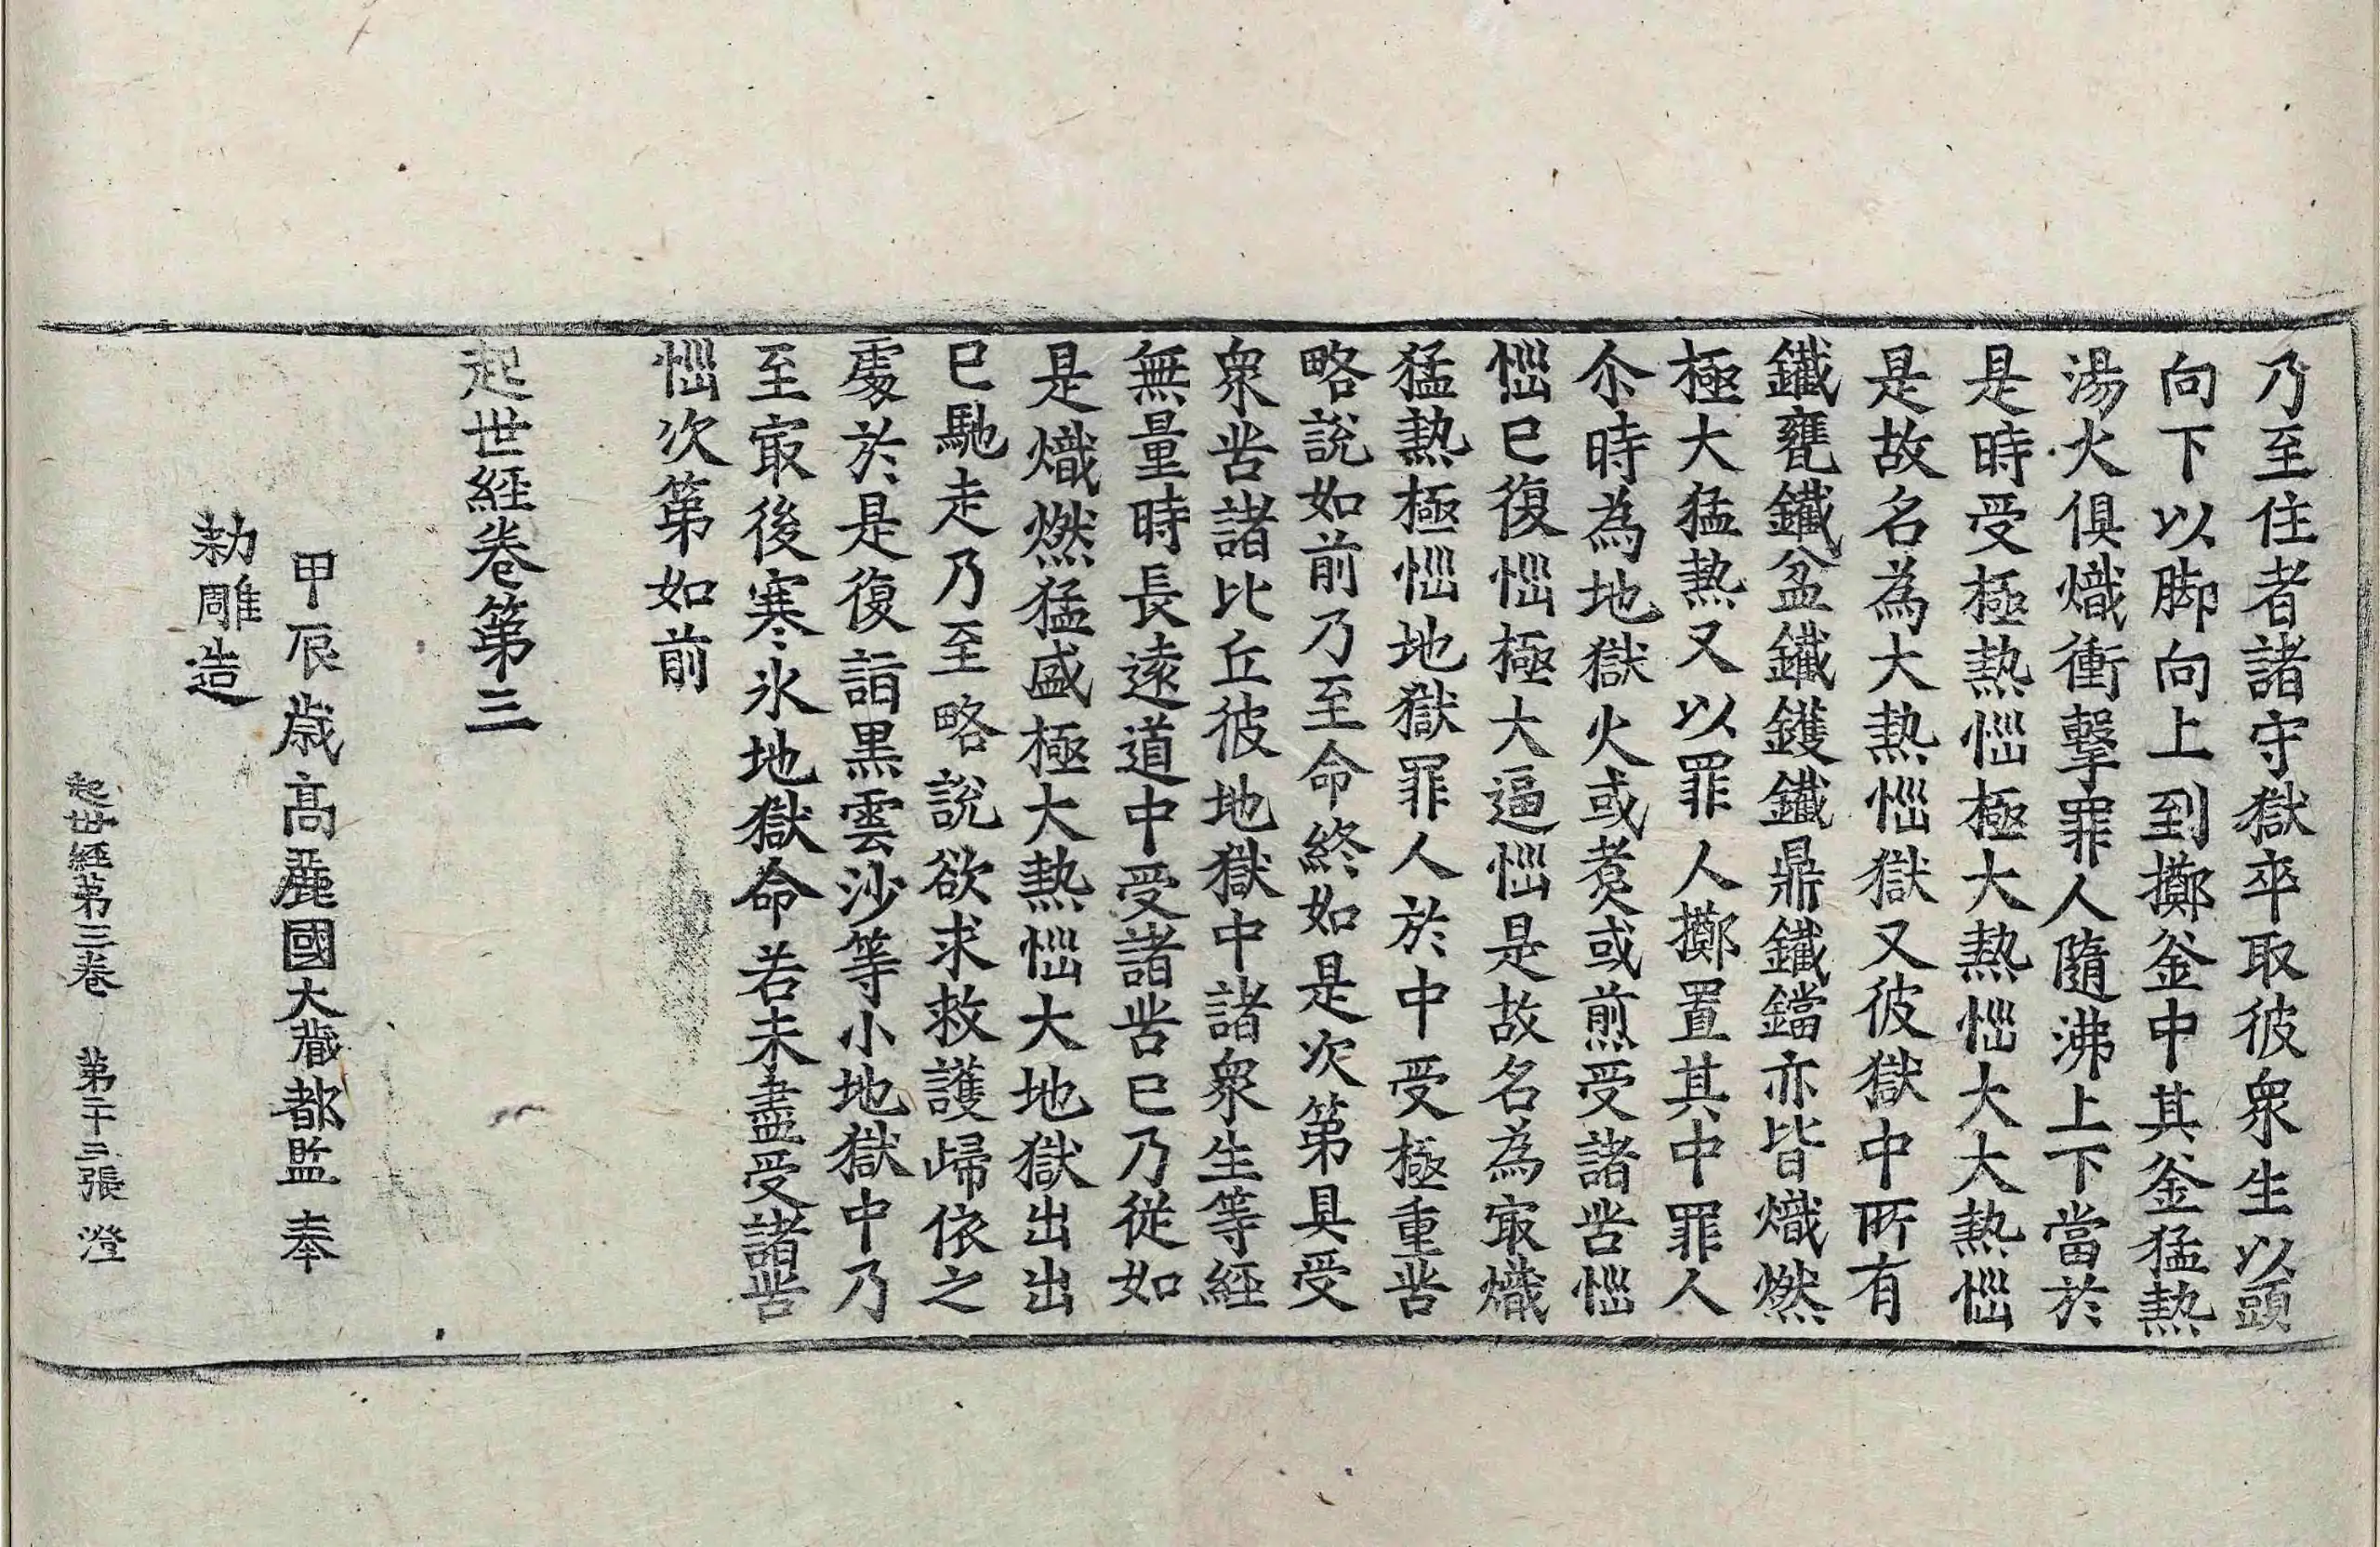 乃至住者諸守獄卒取彼衆生以頭
向下以脚向上到擲釜中其釜猛熱
湯火俱熾衝擊罪人隨沸上下當於
是時受極熱惱極大熱惱大大熱惱
是故名為大熱惱獄又彼獄中所有
鐵甕鐵盆鐵鑊鐵鼎鐵鐺亦皆熾燃
極大猛熱又以罪人擲置其中罪人
尒時為地獄火或煮或煎受諸苦惱
惱已復惱極大逼惱是故名為㝡熾
猛熱極惱地獄罪人於中受極重苦
略說如前乃至命終如是次第具受
衆苦諸比丘彼地獄中諸衆生等經
無量時長遠道中受諸苦已乃從如
是熾燃猛盛極大熱惱大地獄出出
已馳走乃至略說欲求救護歸依之
處於是復詣黑雲沙等小地獄中乃
至㝡後寒氷地獄命若未盡受諸苦
惱次第如前
起世經卷第三
甲辰歲高麗國大藏都監奉
勑雕造
起世經第三卷　第二十三張　澄